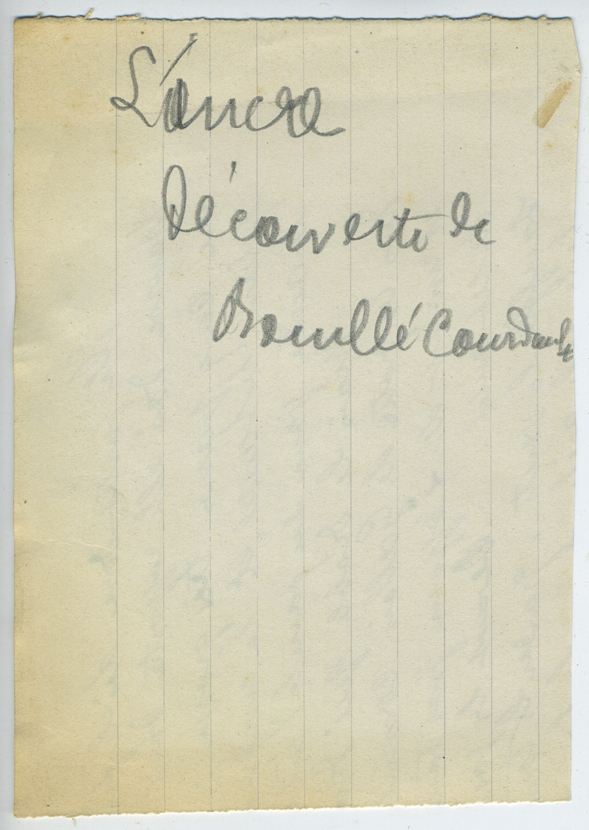 L'ancre
Découverte de
Bouillé Courdault